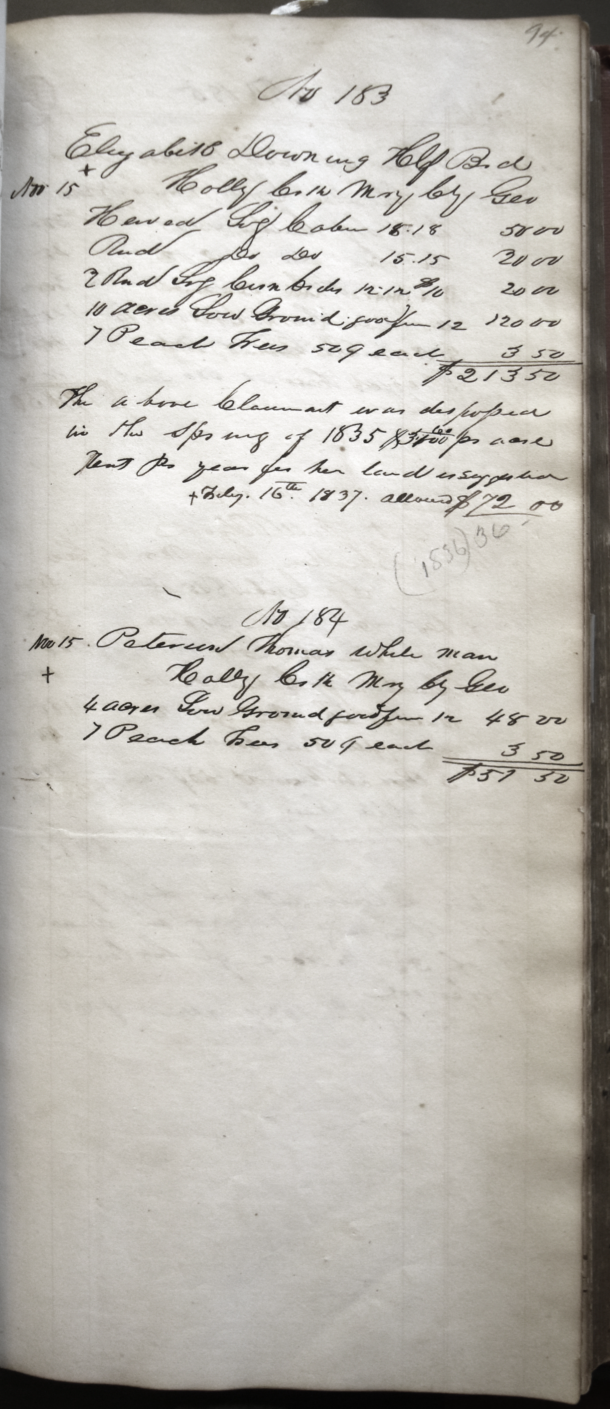 94
No 183
Elizabeth Downing Hlf Brd
+
Nov 15 Holly Crk Mry Cty Geo
Hewed Log Cabin 18.18 50 00
Rnd Do Do 15.15 20 00
2 Rnd Log Corn Cribs 12.12 $10 20 00
10 acres Low Ground good fnn 12 120 00
7 Peach Trees 50¢ each 3 50
$213 50
The above Claimant was disposed
in the Spring of 1835 pr acre
Rent pr year for her land is suggestion
+ Feby. 16th. 1837. allowed $72 00
(1836) 36
No 184
Nov 15. Peterson Thomas white man
+ Holly Crk Mry Cty Geo
4 acres Low Ground good fnn 12 48 00
7 Peach Trees 50¢ each 3 50
$51 50